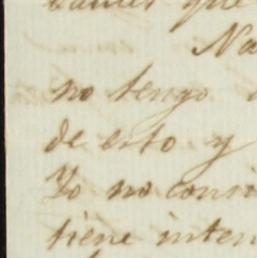 que
Na
no tengo
de esto y
Yo no consi
tiene inten